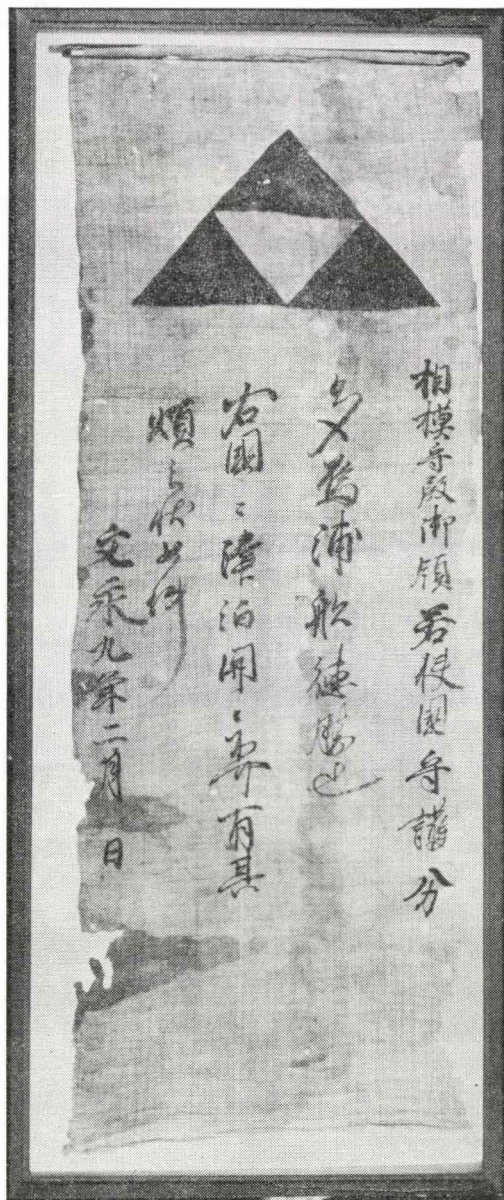 相模守殿御領若狭国守護分
多烏浦船徳勝也
右国々津泊関々不可有其
煩之状如件
文永九年二月　日